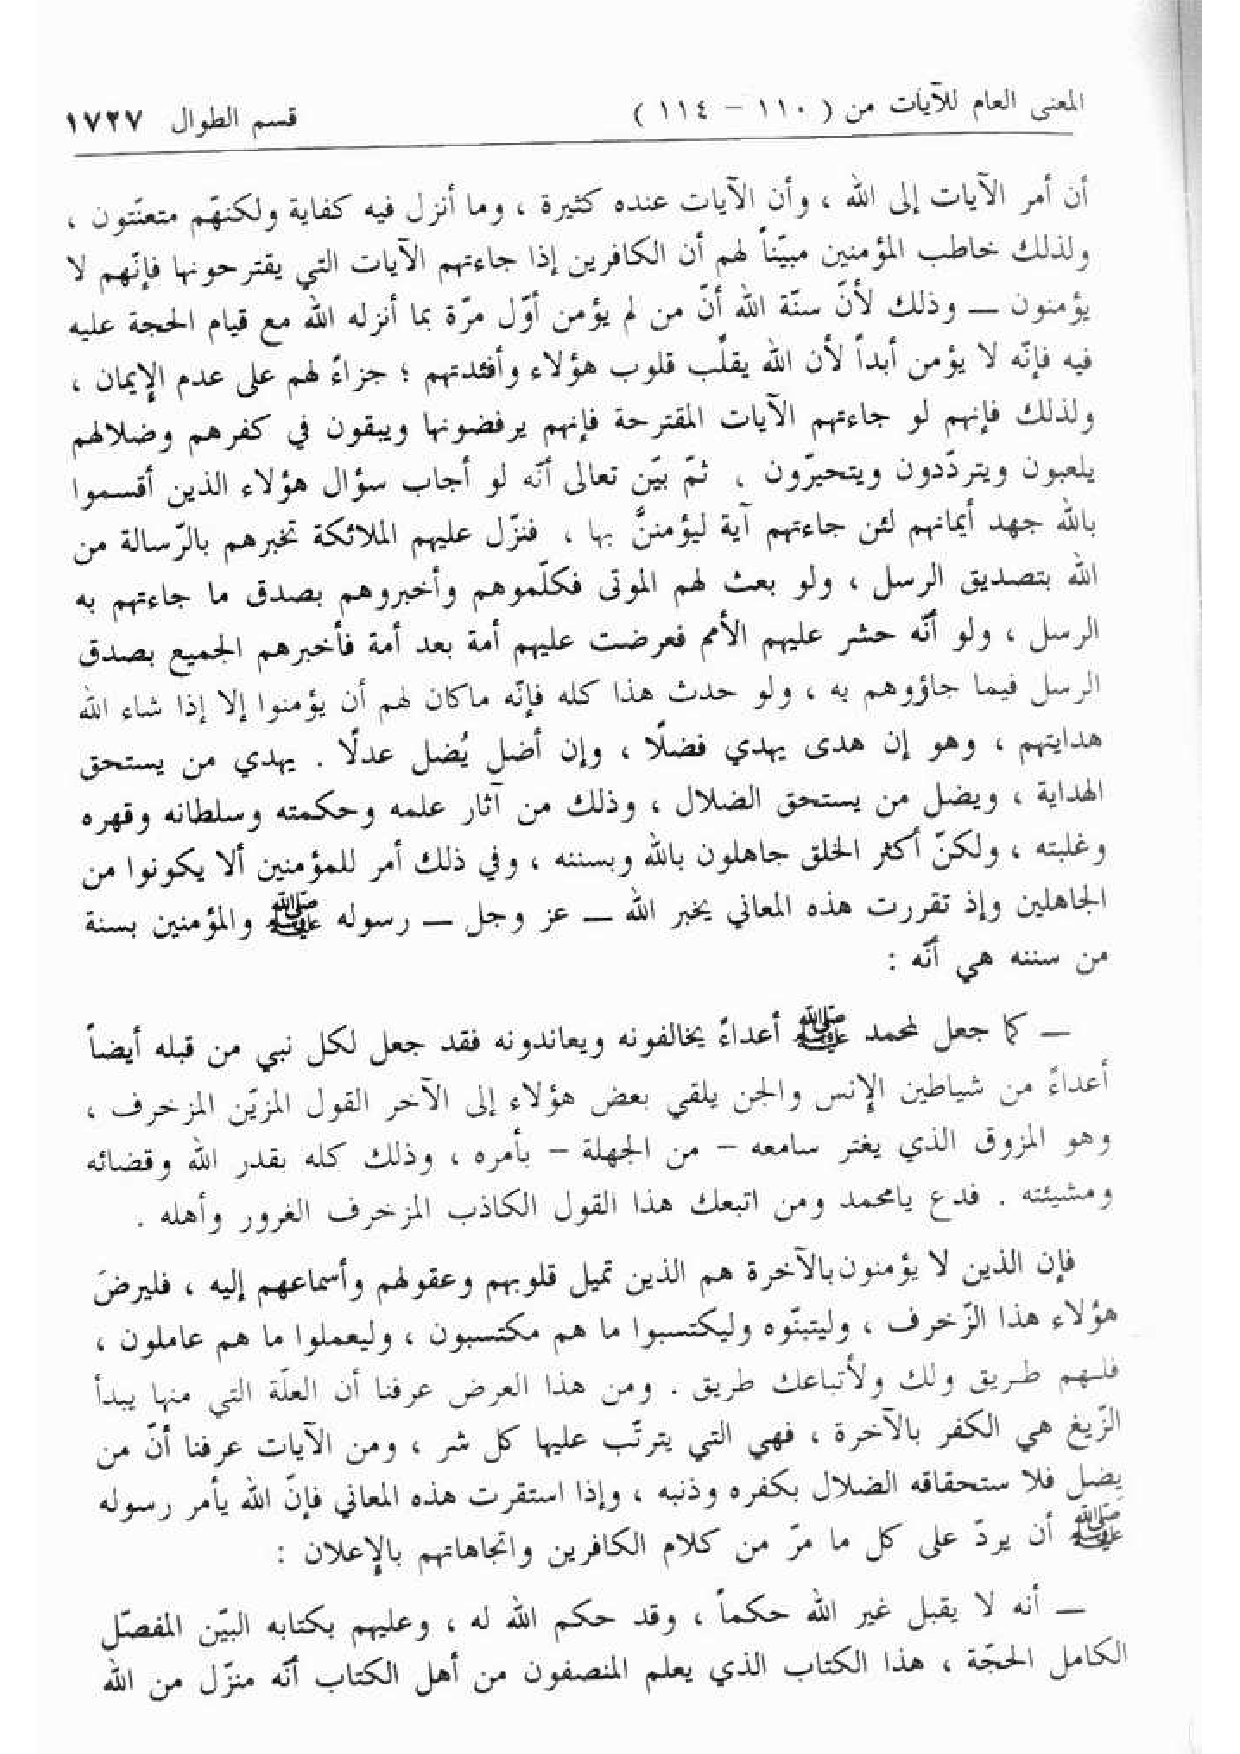 المعنى العام للآيات من ( ١١٠ – ١١٤ )
قسم الطوال ١٧٢٧
أن أمر الآيات إلى الله ، وأن الآيات عنده كثيرة ، وما أنزل فيه كفاية ولكنهّم متعنّتون ،
ولذلك خاطب المؤمنين مبيّناً لهم أن الكافرين إذا جاءتهم الآيات التي يقترحونها فإنّهم لا
يؤمنون — وذلك لأنّ سنّة الله أنّ من لم يؤمن أوّل مرّة بما أنزله الله مع قيام الحجة عليه
فيه فإنّه لا يؤمن أبداً لأن الله يقلّب قلوب هؤلاء وأفئدتهم ؛ جزاءً لهم على عدم الإيمان ،
ولذلك فإنهم لو جاءتهم الآيات المقترحة فإنهم يرفضونها ويبقون في كفرهم وضلالهم
يلعبون ويتردّدون ويتحيرّون ، ثمّ بيّن تعالى أنّه لو أجاب سؤال هؤلاء الذين أقسموا
بالله جهد أيمانهم لئن جاءتهم آية ليؤمننَّ بها ، فنزّل عليهم الملائكة تخبرهم بالرّسالة من
الله بتصديق الرسل ، ولو بعث لهم الموتى فكلّموهم وأخبروهم بصدق ما جاءتهم به
الرسل ، ولو أنّه حشر عليهم الأمم فعرضت عليهم أمة بعد أمة فأخبرهم الجميع بصدق
الرسل فيما جاؤوهم به ، ولو حدث هذا كله فإنّه ماكان لهم أن يؤمنوا إلا إذا شاء الله
هدايتهم ، وهو إن هدى يهدي فضلًا ، وإن أضل يُضل عدلًا . يهدي من يستحق
الهداية ، ويضل من يستحق الضلال ، وذلك من آثار علمه وحكمته وسلطانه وقهره
وغلبته ، ولكنّ أكثر الخلق جاهلون بالله وبسننه ، وفي ذلك أمر للمؤمنين ألا يكونوا من
الجاهلين وإذ تقررت هذه المعاني يخبر الله — عز وجل — رسوله ﷺ والمؤمنين بسنة
من سننه هي أنّه :
— كما جعل لمحمد ﷺ أعداءً يخالفونه ويعاندونه فقد جعل لكل نبي من قبله أيضاً
أعداءً من شياطين الإنس والجن يلقي بعض هؤلاء إلى الآخر القول المزيّن المزخرف ،
وهو المزوق الذي يغتر سامعه – من الجهلة – بأمره ، وذلك كله بقدر الله وقضائه
ومشيئته . فدع يامحمد ومن اتبعك هذا القول الكاذب المزخرف الغرور وأهله .
فإن الذين لا يؤمنون بالآخرة هم الذين تميل قلوبهم وعقولهم وأسماعهم إليه ، فليرضَ
هؤلاء هذا الزّخرف ، وليتبنّوه وليكتسبوا ما هم مكتسبون ، وليعملوا ما هم عاملون ،
فلهم طريق ولك ولأتباعك طريق . ومن هذا العرض عرفنا أن العلّة التي منها يبدأ
الزّيغ هي الكفر بالآخرة ، فهي التي يترتّب عليها كل شر ، ومن الآيات عرفنا أنّ من
يضل فلا ستحقاقه الضلال بكفره وذنبه ، وإذا استقرت هذه المعاني فإنّ الله يأمر رسوله
ﷺ أن يردّ على كل ما مرّ من كلام الكافرين واتجاهاتهم بالإعلان :
— أنه لا يقبل غير الله حكماً ، وقد حكم الله له ، وعليهم بكتابه البيّن المفصّل
الكامل الحجّة ، هذا الكتاب الذي يعلم المنصفون من أهل الكتاب أنّه منزّل من الله